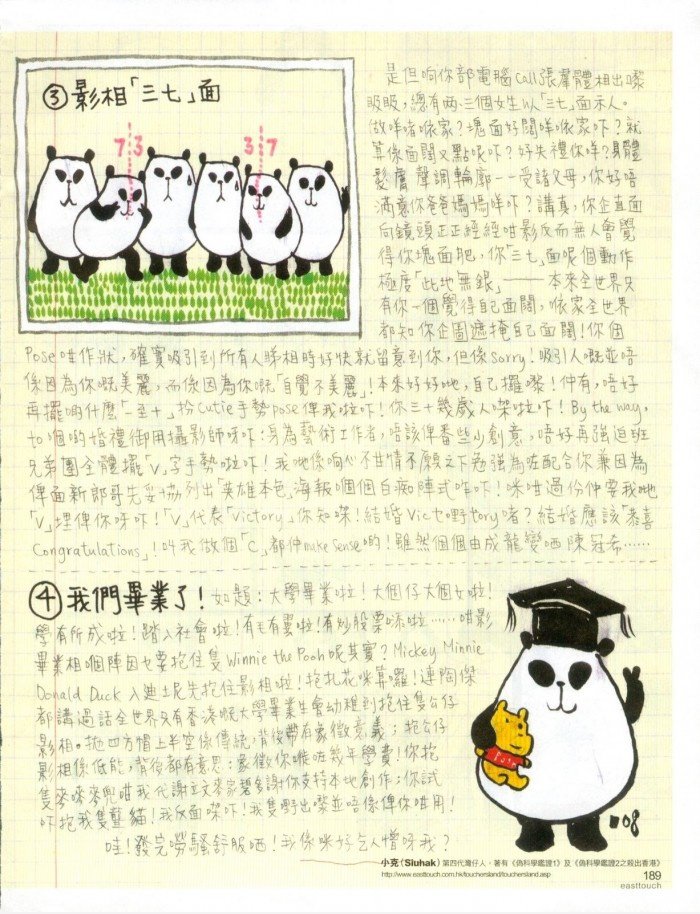 ③影相「三七」面
7 3
3 7
是但响你部電腦call張羣體相出嚟
睇睇，總有兩三個女生以「三七」面示人。
做咩啫依家？塊面好闊咩依家吓？就
算係面闊又點呢吓？好失禮你咩？身體
髮膚聲調輪廓——受諸父母，你好唔
滿意你爸爸媽媽咩吓？講真，你企直面
向鏡頭正正經經咁影反而無人會覺
得你塊面肥，你「三七」面呢個動作
極度「此地無銀」——本來全世界只
有你一個覺得自己面闊，依家全世界
都知你企圖遮掩自己面闊！你個
Pose咁作狀，確實吸引到所有人睇相時好快就留意到你，但係sorry！吸引人嘅並唔
係因為你嘅美麗，而係因為你嘅「自覺不美麗」！本來好好哋，自己攞嚟！仲有，唔好
再擺啲什麼「一至十」，扮cutie手勢pose俾我啦吓！你三十幾歲人㗎啦吓！By the way，
to啲的婚禮御用攝影師呀吓：身為藝術工作者，唔該俾番些少創意，唔好再強迫班
兄弟團全體擺「V」字手勢啦吓！我哋係响心不甘情不願之下勉強為咗配合你兼因為
俾面新郎哥先妥協列出「英雄本色」海報嗰個白痴陣式咋吓！咪咁過份仲要我哋
「V」埋俾你呀吓！「V」代表「Victory」你知㗎！結婚Vic乜嘢tory啫？結婚應該「恭喜
Congratulations」！叫我做個「C」都仲make sense啲！雖然個個由成龍變晒陳冠希……
④我們畢業了！如題：大學畢業啦！大個仔大個女啦！
學有所成啦！踏入社會啦！有毛有翼啦！有炒股票添啦……咁影
畢業相嗰陣因乜要抱住隻Winnie the Pooh呢其實？Mickey Minnie
Donald Duck入迪士尼先抱住影相啦！抱扎花咪算囉！連陶傑
都講過話全世界只有香港嘅大學畢業生會幼稚到抱住隻公仔
影相。拋四方帽上半空係傳統，背後帶有象徵意義；抱公仔
影相係低能，背後都有意思：象徵你嘥咗幾年學費！你抱
隻麥嘜麥兜咁我代謝立文麥家碧多謝你支持本地創作；你試
吓抱我隻䕫貓！我反面㗎吓！我隻嘢出嚟並唔係俾你咁用！
哇！發完勞騷舒服晒！我係咪好乞人憎呀我？
POOH
08
小克(Siuhak) 第四代灣仔人，著有《偽科學鑑證1》及《偽科學鑑證2之殺出香港》
http://www.easttouch.com.hk/touchersland/touchersland.asp
189
easttouch